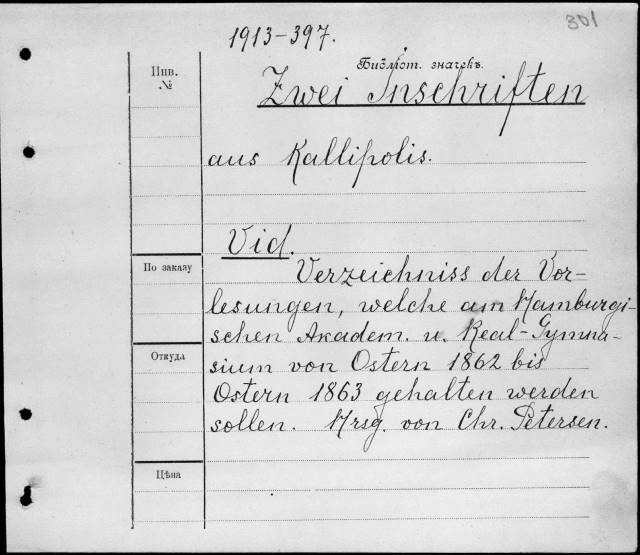 1913-397.
301
Библіот. значекъ.
Инв.
№
Zwei Inschriften
aus Kallipolis.
Vid.
По заказу
Verzeichniss der Vor-
lesungen, welche am Hamburgi-
schen Akadem. u. Real-Gymna-
Откуда
sium von Ostern 1862 bis
Ostern 1863 gehalten werden
sollen. Hrsg. von Chr. Petersen.
Цѣна